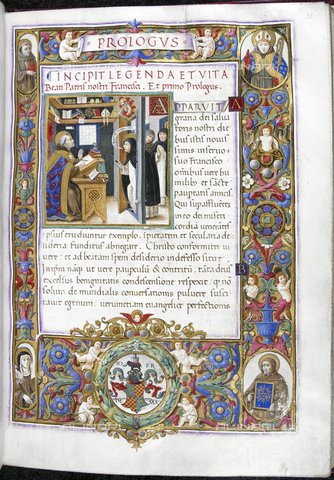 PROLOGUS
INCIPIT LEGENDA ET VITA
Beati Patris nostri Francisci. Et primo Prologus.
APPARVIT
gratia dei salua
toris nostri die
bus istis nouis
simis in seruo
suo Francisco
omnibus uere hu
milibus et sacre
paupertatis amicis.
Qui supaffluente
in eo dei miseri
cordia uenerant
ipsius erudiuntur exemplo. Ipietatem et secularia de
sideria funditus abnegare. Christo conformiter ui
uere: et ad beatam spem desiderio indefesso sitire.
In ipm naqs ut uere pauperculu et contritu, tata dei
excelsus benignitatis condescensione respexit: qp no
solum de mundialis conuersationis puluere susci
tauit egenum: uerumetiam euangelice perfectionis